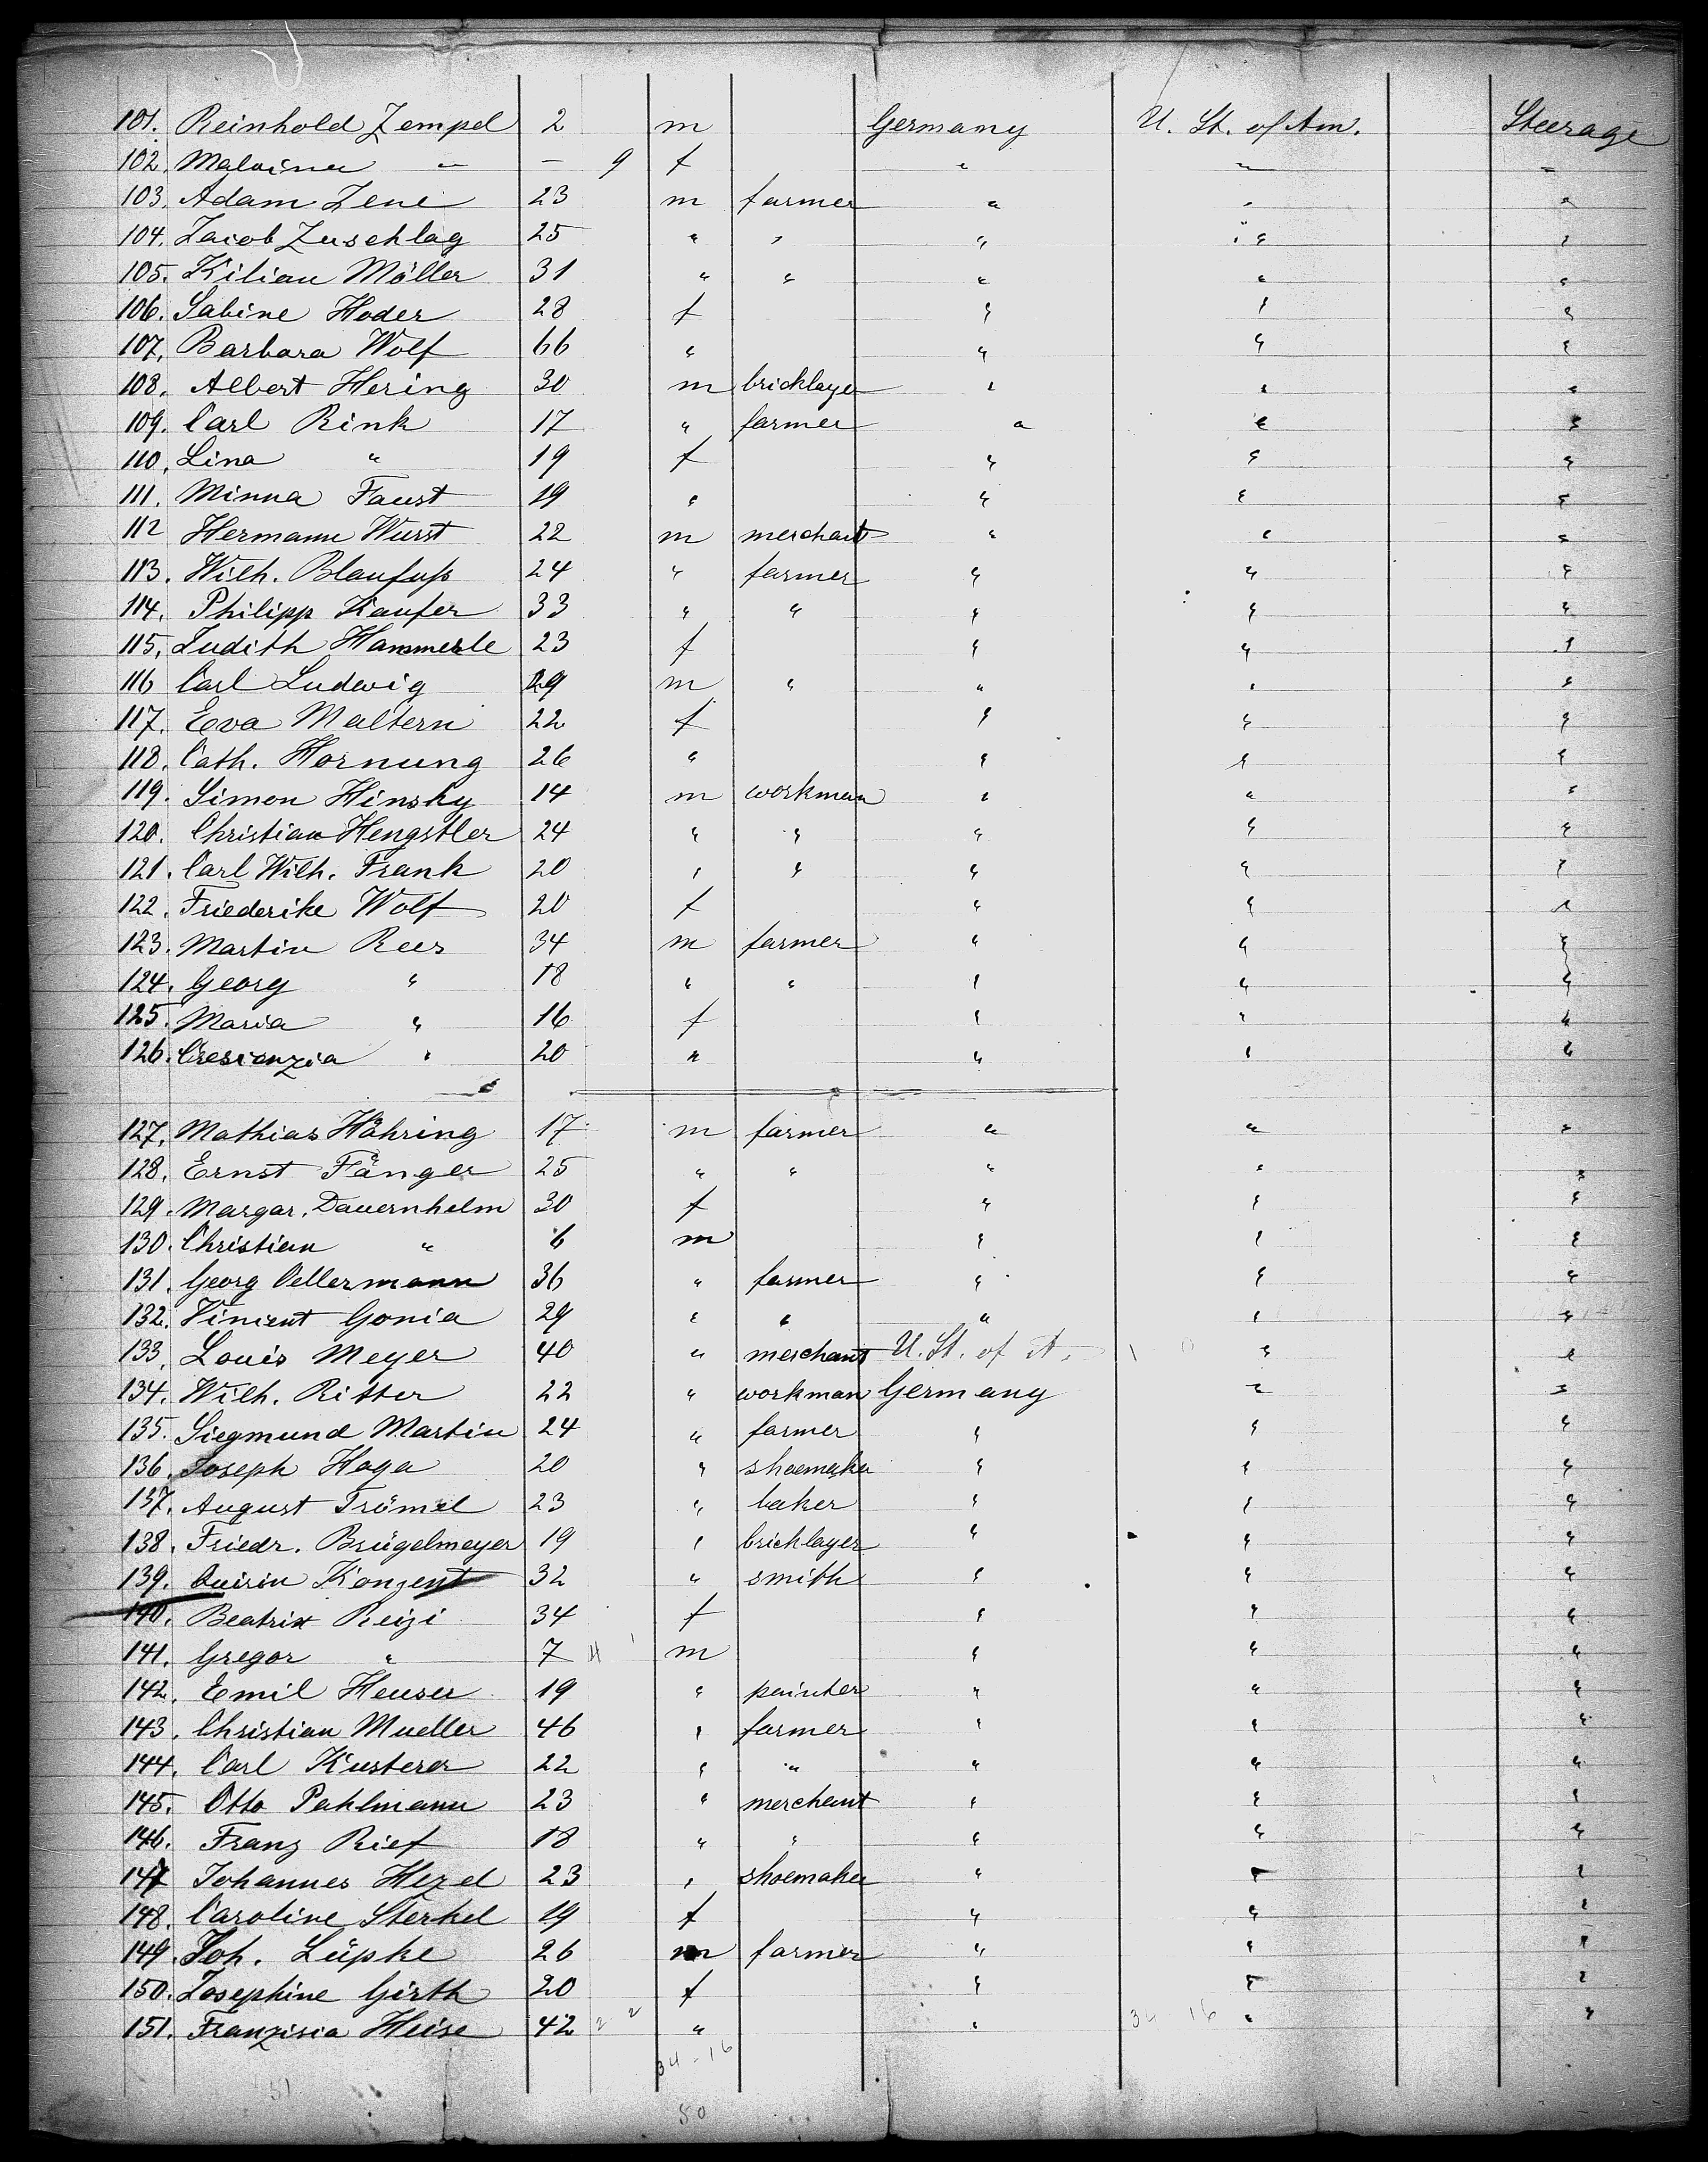 101. Reinhold Zempel 2 m Germany U. St. of Am. Steerage
102. Malvina " — 9 f " " "
103. Adam Zene 23 m farmer " " "
104. Jacob Zuschlag 25 " " " " "
105. Kilian Möller 31 " " " " "
106. Sabine Hoder 28 f " " "
107. Barbara Wolf 66 " " " "
108. Albert Hering 30 m bricklayer " " "
109. Carl Rink 17 " farmer " " "
110. Lina " 19 f " " "
111. Minna Faust 19 " " " "
112 Hermann Wurst 22 m merchant " " "
113. Wilh. Blaufuß 24 " farmer " " "
114. Philipp Kaufer 33 " " " " "
115. Judith Hammerle 23 f " " "
116 Carl Ludwig 29 m " " " "
117. Eva Maltern 22 f " " "
118. Cath. Hornung 26 " " " "
119. Simon Hinsky 14 m workman " " "
120. Christian Hengstler 24 " " " " "
121. Carl Wilh. Frank 20 " " " " "
122. Friederike Wolf 20 f " " "
123. Martin Rees 34 m farmer " " "
124. Georg " 18 " " " " "
125. Maria " 16 f " " "
126. Crescenzia " 20 " " " "
127. Mathias Hähring 17 m farmer " " "
128. Ernst Fänger 25 " " " " "
129. Margar. Dauernhelm 30 f " " "
130. Christian " 6 m " " "
131. Georg Oellermann 36 " farmer " " "
132. Vincent Gonia 29 " " " " "
133. Louis Meyer 40 " merchant U. St. of A. 1 0 " "
134. Wilh. Ritter 22 " workman Germany " "
135. Siegmund Martin 24 " farmer " " "
136. Joseph Haga 20 " shoemaker " " "
137. August Trömel 23 " baker " " "
138. Friedr. Brügelmeyer 19 " bricklayer " " "
139. Quirin Konzent 32 " smith " " "
140. Beatrix Reizi 34 f " " "
141. Gregor " 7 m " " "
142. Emil Heuser 19 " painter " " "
143. Christian Mueller 46 " farmer " " "
144. Carl Kusterer 22 " " " " "
145. Otto Pahlmann 23 " merchant " " "
146. Franz Rief 18 " " " " "
147 Johannes Hezel 23 " shoemaker " " "
148. Caroline Sterkel 19 f " " "
149. Joh. Lüpke 26 m farmer " " "
150. Josephine Girth 20 f " " "
151. Franzisca Heise 42 2 2 " " 34 16 " "
34-16
51
50